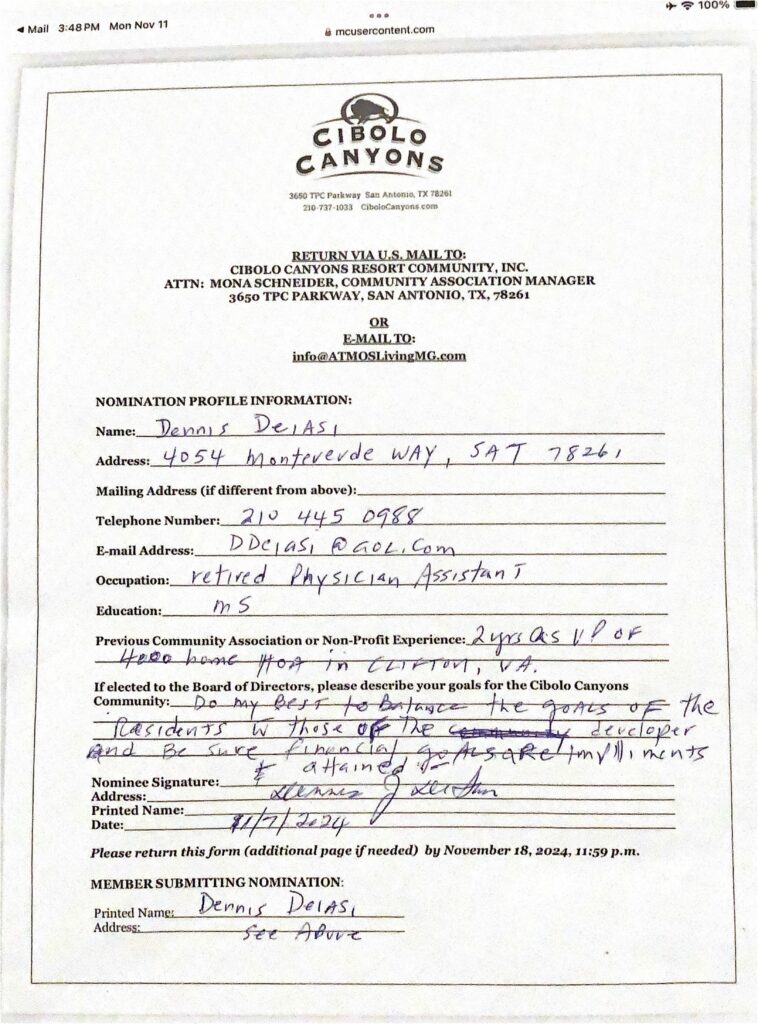 Mail 3:48 PM Mon Nov 11
100%
mcusercontent.com
CIBOLO
CANYONS
3650 TPC Parkway San Antonio, TX 78261
210-737-1033 CiboloCanyons.com
RETURN VIA U.S. MAIL TO:
CIBOLO CANYONS RESORT COMMUNITY, INC.
ATTN: MONA SCHNEIDER, COMMUNITY ASSOCIATION MANAGER
3650 TPC PARKWAY, SAN ANTONIO, TX, 78261
OR
E-MAIL TO:
info@ATMOSLivingMG.com
NOMINATION PROFILE INFORMATION:
Name: Dennis DeIASI
Address: 4054 Monteverde WAY, SAT 78261
Mailing Address (if different from above):
Telephone Number: 210 445 0988
E-mail Address: DDeiasi@aol.com
Occupation: retired Physician Assistant
Education: MS
Previous Community Association or Non-Profit Experience: 2 yrs as VP OF
4000 home HOA in CLIFTON, VA.
If elected to the Board of Directors, please describe your goals for the Cibolo Canyons
Community: Do my BEST to Balance the goals OF the
Residents W those OF The community developer
and Be sure financial goals are implliments
& attained
Nominee Signature:
Address:
Printed Name:
Date: 11/7/2024
Please return this form (additional page if needed) by November 18, 2024, 11:59 p.m.
MEMBER SUBMITTING NOMINATION:
Printed Name: Dennis DeIASI
Address: See Above